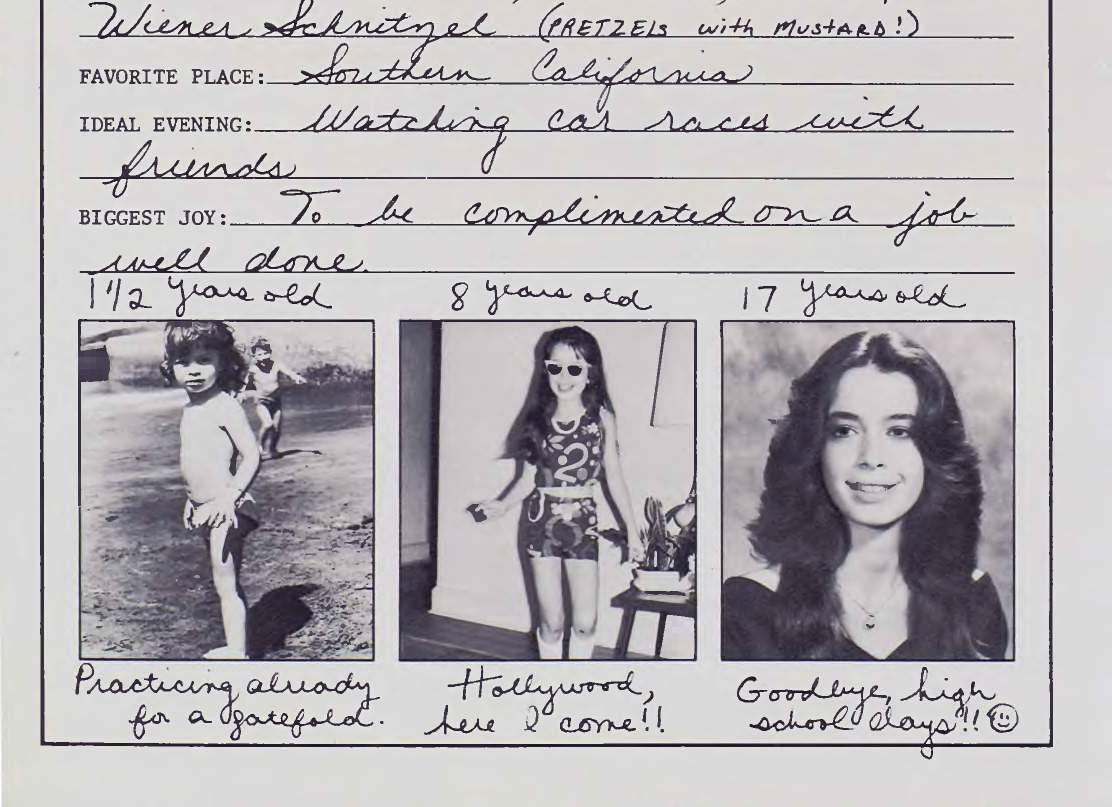 Wiener Schnitzel (PRETZELS with MUSTARD!)
FAVORITE PLACE: Southern California
IDEAL EVENING: Watching car races with
friends
BIGGEST JOY: To be complimented on a job
well done.
1 1/2 years old 8 years old 17 years old
Practicing already
for a gatefold.
Hollywood,
here I come!!
Goodbye, high
school days!!